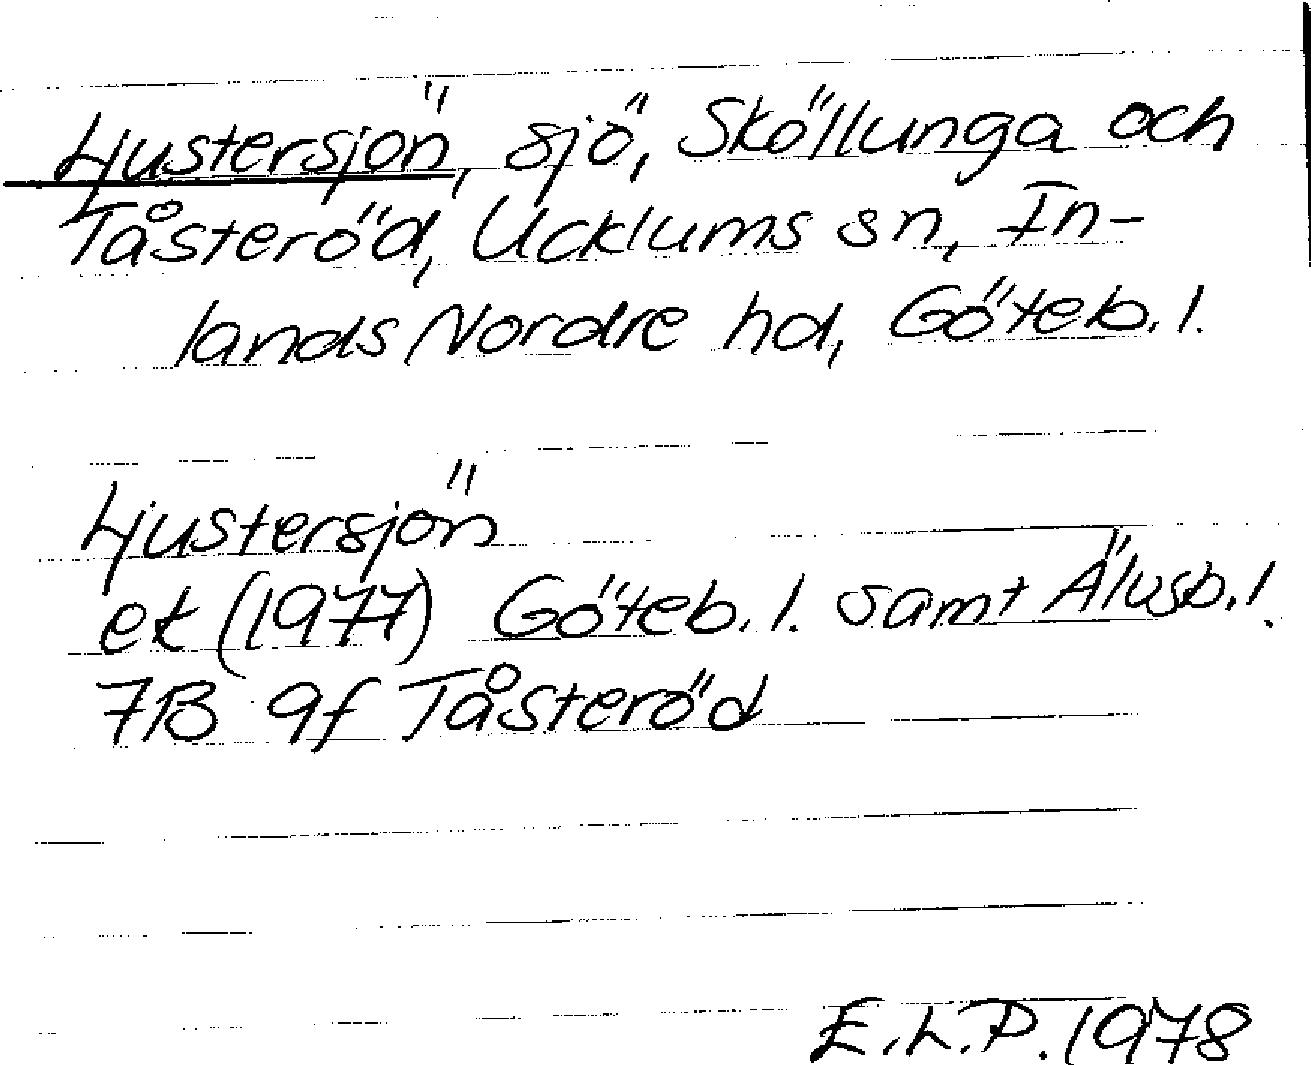 Ljustersjön, sjö, Sköllunga och
Tåsteröd, Ucklums sn, In-
lands Nordre hd, Göteb. l.
Ljustersjön
ek (1977) Göteb. l. samt Älvsb. l.
7B 9f Tåsteröd
E.L.P. 1978